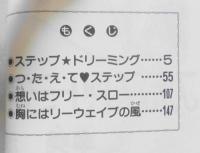 もくじ
●ステップ★ドリーミング……5
●つ・た・え・て♥ステップ……55
●想いはフリー・スロー……107
●胸にはリーウェイブの風……147